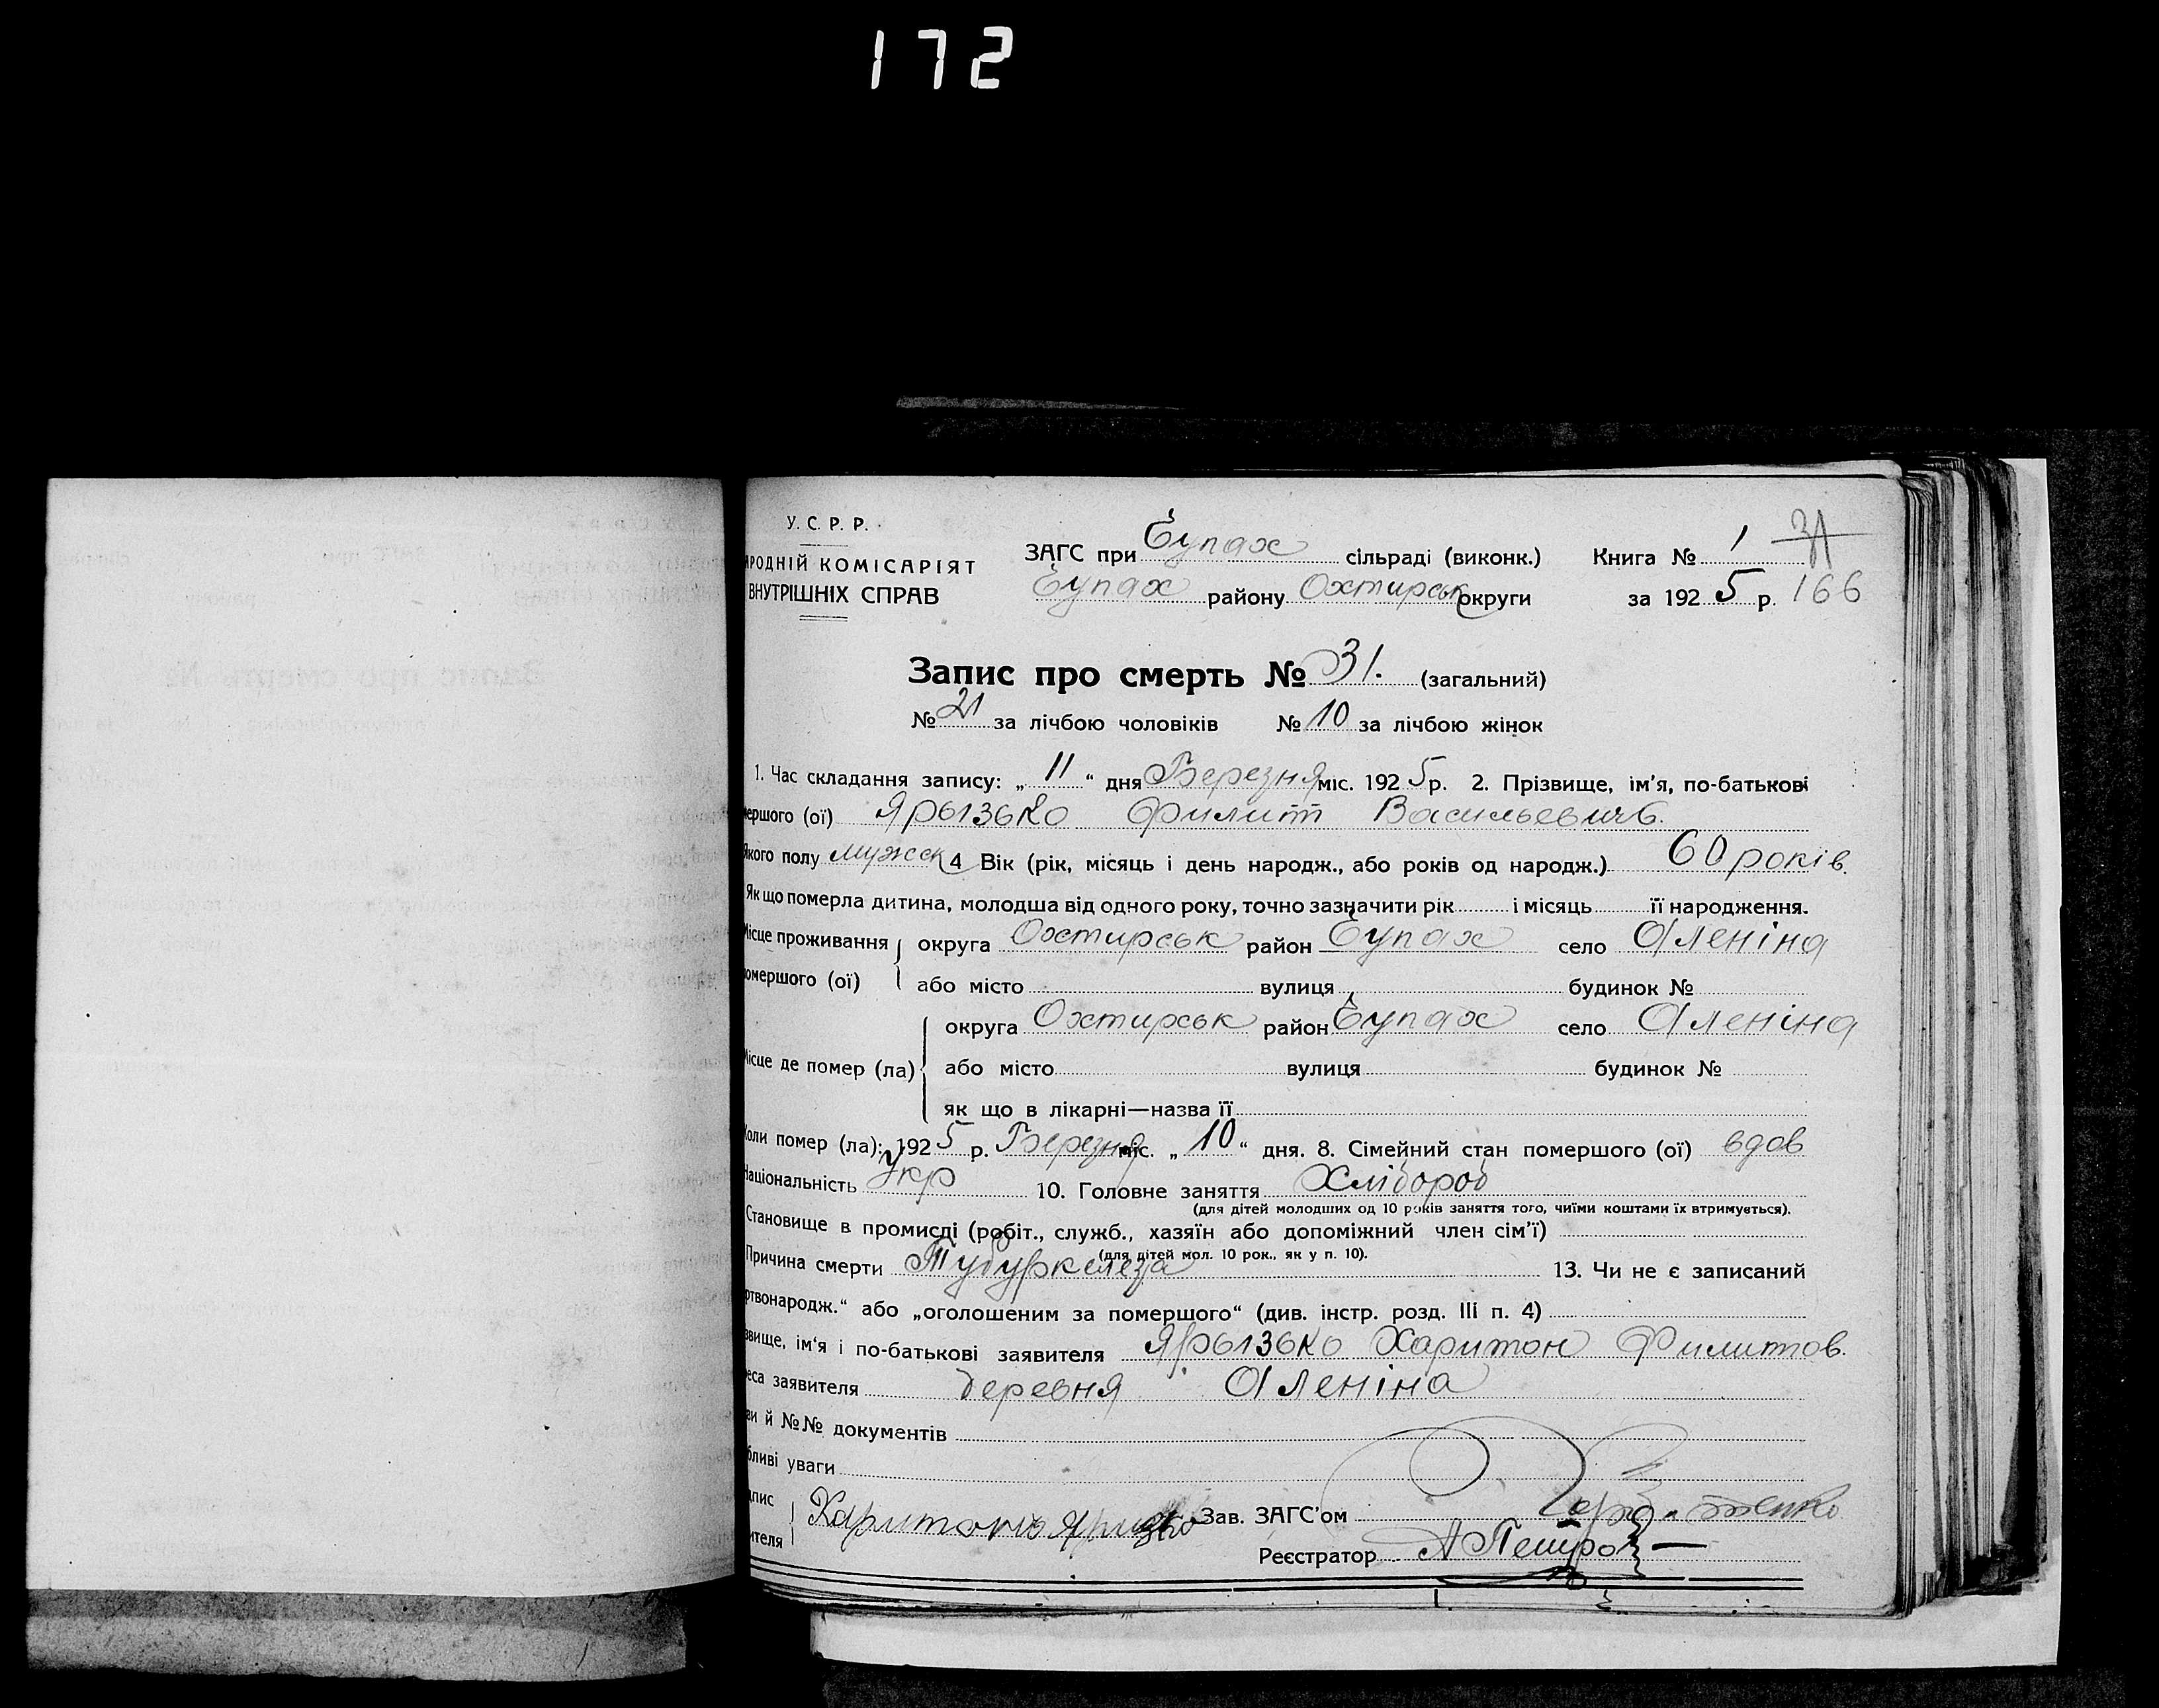 172
У. С. Р. Р.
АРОДНІЙ КОМІСАРІЯТ
ВНУТРІШНІХ СПРАВ
ЗАГС при Єупах сільраді (виконк.) Книга № 1 31
Єупах району Охтирськ округи за 1925 р. 166
Запис про смерть № 31. (загальний)
№ 21 за лічбою чоловіків № 10 за лічбою жінок
1. Час складання запису: „ 11 “ дня Березня міс. 1925 р. 2. Прізвище, ім'я, по-батькові
мершого (ої) Ярызько Филипп Васильевич
Якого полу мужеск 4 Вік (рік, місяць і день народж., або років од народж.) 60 років.
Як що померла дитина, молодша від одного року, точно зазначити рік і місяць її народження.
Місце проживання округа Охтирськ район Єупах село Оленіна
помершого (ої) або місто вулиця будинок №
округа Охтирськ район Єупах село Оленіна
Місце де помер (ла) або місто вулиця будинок №
як що в лікарні—назва її
Коли помер (ла): 1925 р. Березня міс. „ 10 “ дня. 8. Сімейний стан помершого (ої) вдов
Національність Укр 10. Головне заняття Хлібороб
(для дітей молодших од 10 років заняття того, чиїми коштами їх втримується).
Становище в промислі (робіт., служб., хазяїн або допоміжний член сім'ї)
(для дітей мол. 10 рок., як у п. 10).
Причина смерти Тубуркелеза 13. Чи не є записаний
ртвонародж.“ або „оголошеним за помершого“ (див. інстр. розд. III п. 4)
звище, ім'я і по-батькові заявителя Ярызько Харитон Филипов.
еса заявителя деревня Оленіна
ви й №№ документів
бливі уваги
дпис Харитонъ Яризко Зав. ЗАГС'ом
ителя Реєстратор А Петро